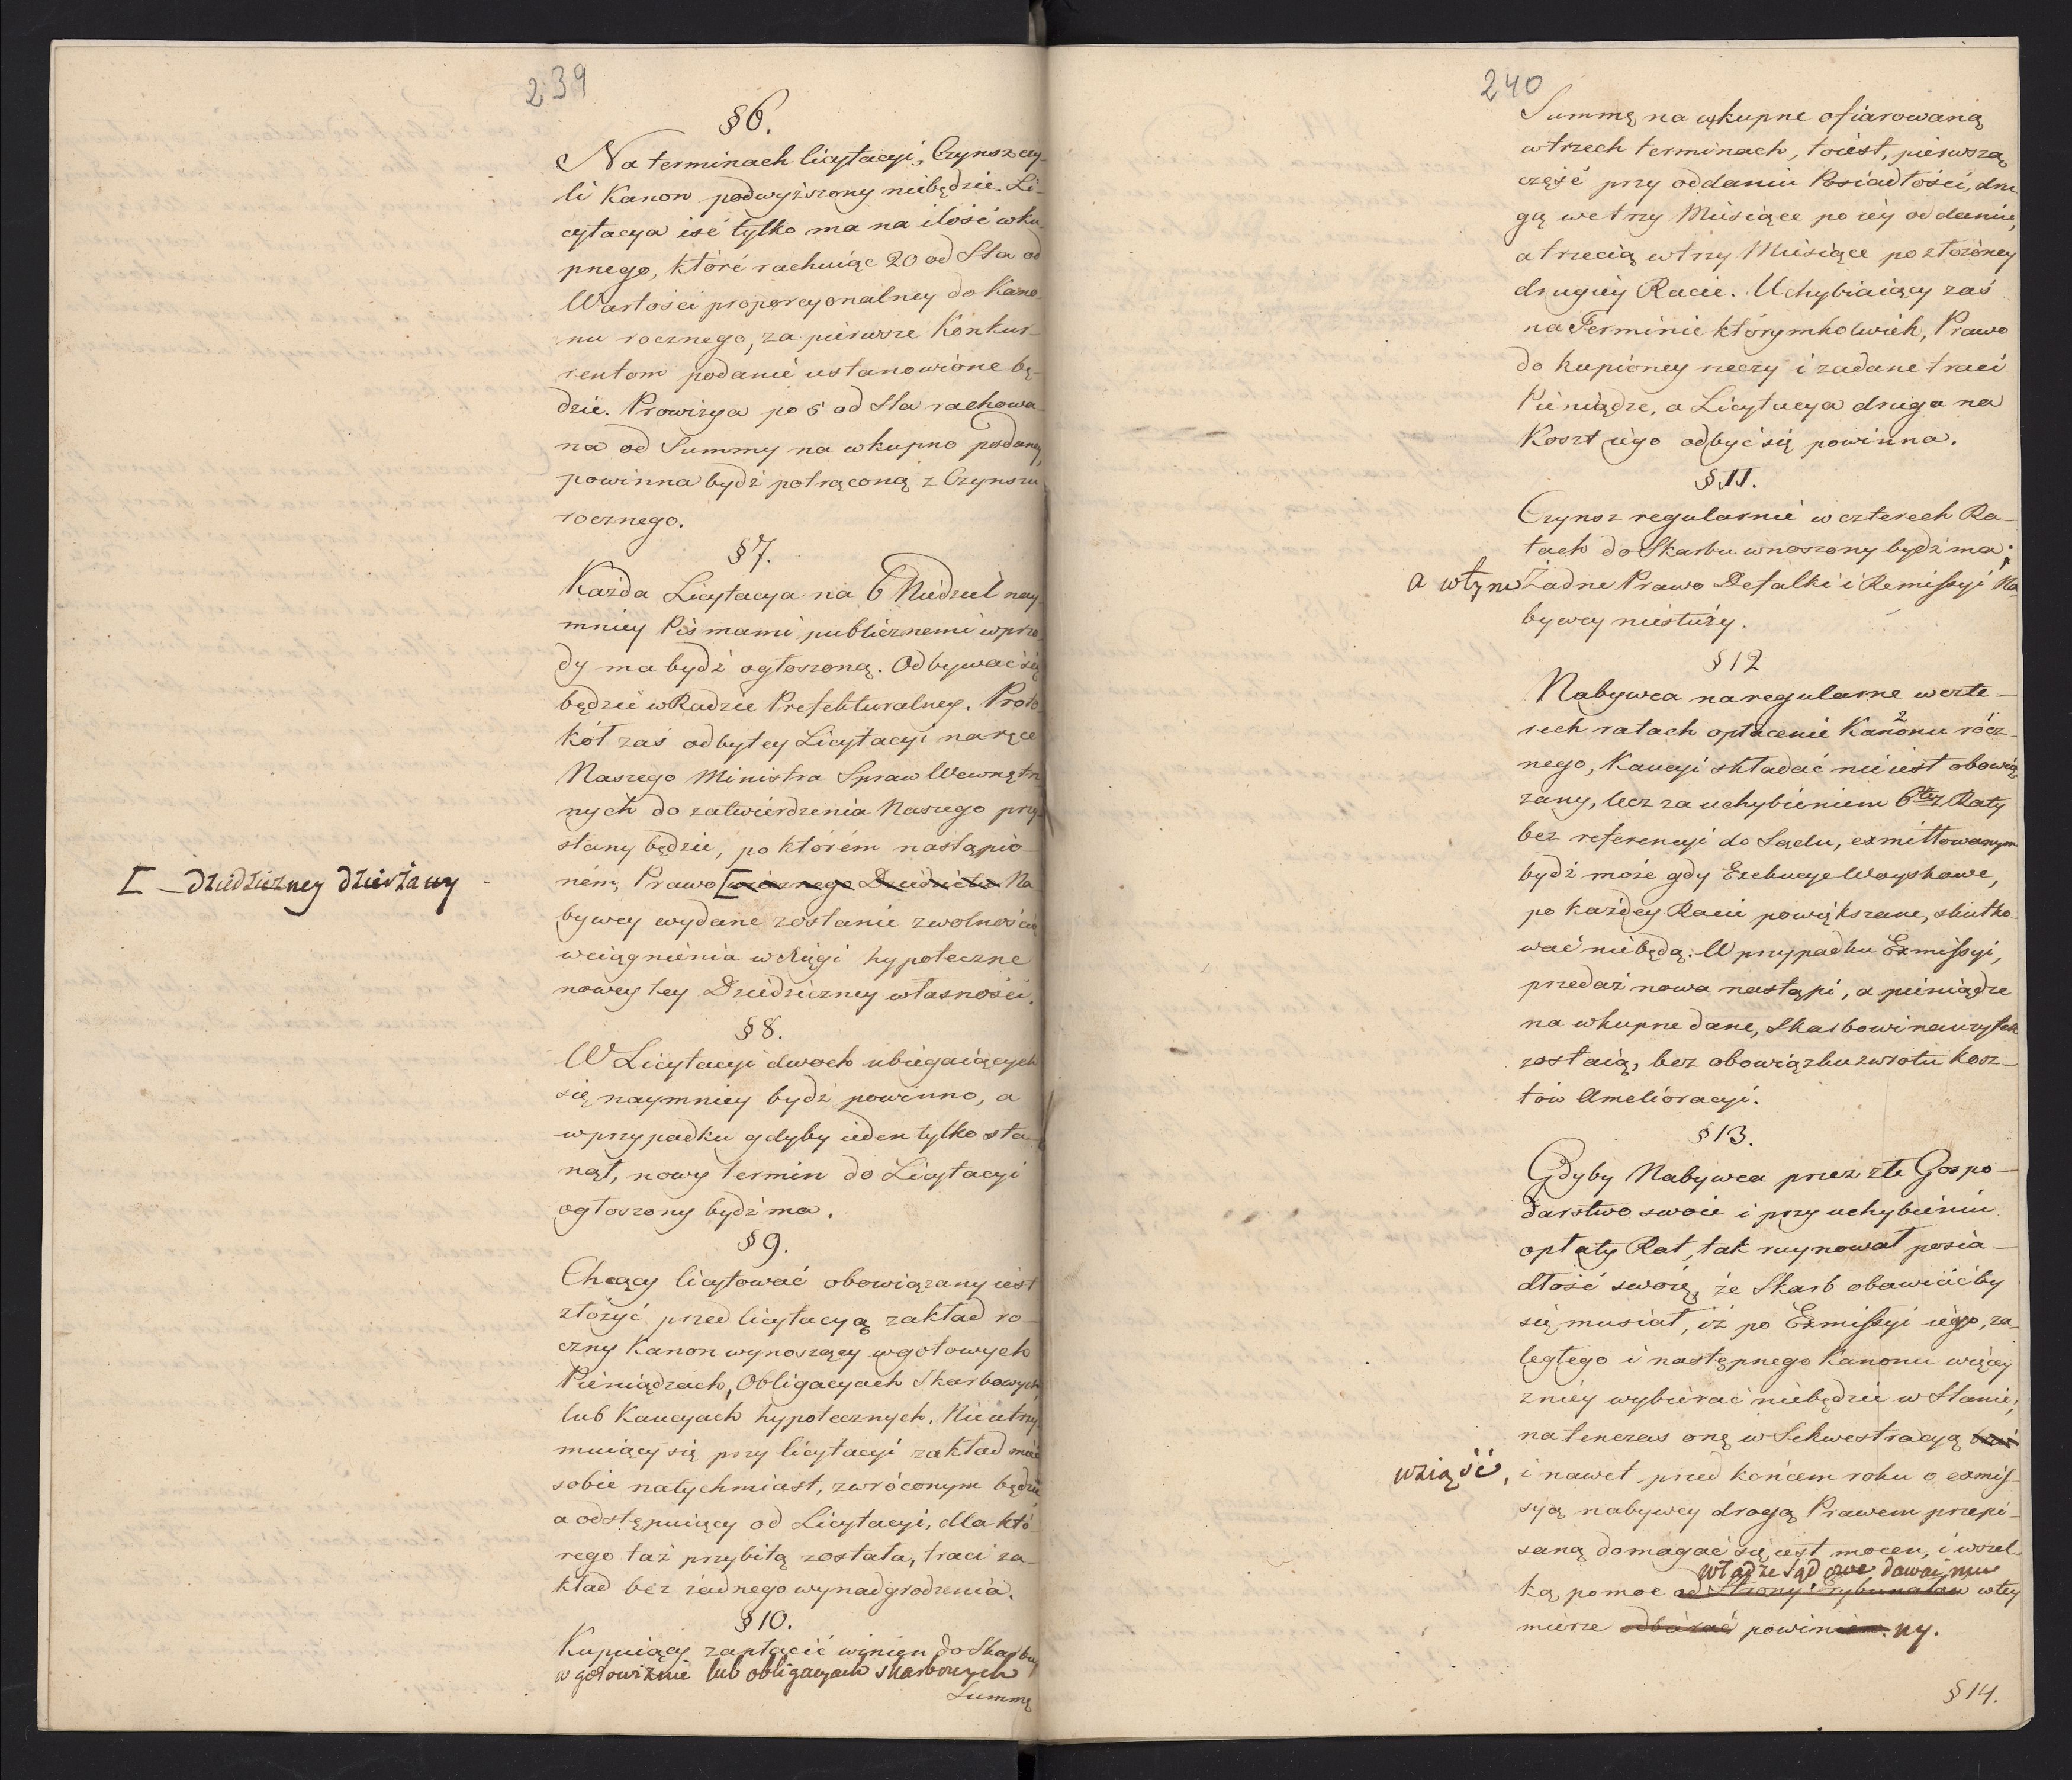 239
§ 6.
Na terminach licytacyi, Czynsz czy-
li Kanon podwyższony niebędzie. Li-
cytacya iść tylko ma na ilość wku-
pnego, które rachuiąc 20 od Sta od
Wartości proporcyonalney do Kano-
nu rocznego, za pierwsze Konkur-
rentom podanie ustanowione bę-
dzie. Prowizya po 5 od Sta rachowa-
na od Summy na wkupno podaney,
powinna bydź potrąconą z Czynszu
rocznego.
§ 7.
Każda Licytacya na 6 Niedziel nay-
mniey Pismami publicznemi wprzo-
dy ma bydź ogłoszoną. Odbywać się
będzie w Radzie Prefekturalney. Proto-
kół zaś odbytey Licytacyi na ręce
Naszego Ministra Spraw Wewnętrz-
nych do zatwierdzenia Naszego prze-
słany będzie, po którém nastąpio-
[ dziedziczney dzierżawy
ném, Prawo [wiecznego Dziedzictwa Na-
bywcy wydane zostanie z wolnością
wciągnienia w Xięgi hypoteczne
nowey tey Dziedziczney własności.
§ 8.
W Licytacyi dwoch ubiegaiących
się naymniey bydź powinno, a
w przypadku gdyby ieden tylko sta-
nął, nowy termin do Licytacyi
ogłoszony bydź ma.
§ 9.
Chcący licytować obowiązany iest
złożyć przed licytacyą zakład ro-
czny Kanon wynoszący w gotowych
Pieniądzach, Obligacyach Skarbowych,
lub Kaucyach hypotecznych. Nieutrzy-
muiący się przy licytacyi zakład mieć
sobie natychmiast, zwróconym będzie
a odstępuiący od Licytacyi, dla któ-
rego taż przybitą została, traci za-
kład bez żadnego wynadgrodzenia.
§ 10.
Kupuiący zapłacić winien do Skarbu
w gotowiznie lub obligacyach skarbowych
Summę
240
Summę na wkupne ofiarowaną
w trzech terminach, toiest, pierwszą
część przy oddaniu Posiadłości, dru
gą we trzy Miesiące po iey oddaniu,
a trzecią w trzy Miesiące po złożoney
drugiey Racie. Uchybiaiący zaś
na Terminie którymkolwiek, Prawo
do kupioney rzeczy i zadane traci
Pieniądze, a Licytacya druga na
Koszt iego odbyć się powinna.
§ 11.
Czynsz regularnie w czterech Ra-
tach do Skarbu wnoszony bydź ma;
a w tym Żadne Prawo Defalki i Remissyi Na-
bywcy niesłuży.
§ 12
Nabywca na regularne w czte-
rech ratach opłacenie Kanonu rocz-
nego, Kaucyi składać nieiest obowią
zany, lecz za uchybieniem 6tey 2 Raty
bez referencyi do Sądu, exmittowanym
bydź może gdy Exekucye Woyskowe,
po każdey Racie powiększane, skutko-
wać niebędą. W przypadku Exmissyi,
przedaż nowa nastąpi, a pieniądze
na wkupne dane, Skarbowi na użytek
zostaią, bez obowiązku zwrotu Kosz-
tów Amelioracyi.
§ 13.
Gdyby Nabywca przez złe Gospo-
darstwo swoie i przy uchybieniu
opłaty Rat, tak ruynował posia-
dłość swoię, że Skarb obawiać by
się musiał, iż po Exmissyi iego, za-
ległego i następnego Kanonu więcey
zniey wybierać niebędzie w Stanie,
natenczas onę w Sekwestracyą
wziąść, i nawet przed końcem roku o exmis-
syą nabywcy drogą Prawem przepi-
saną domagać się iest mocen, i wszel-
władze sądowe dawać mu
ką pomoc od Strony Trybunałow w tey
mierze odbierać powinien. ny.
§ 14.